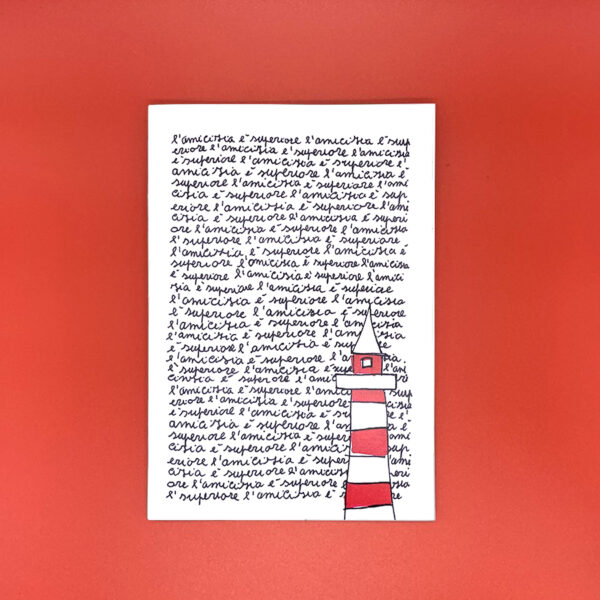 l'amicizia è superiore l'amicizia è sup
eriore l'amicizia è superiore l'amicizia
è superiore l'amicizia è superiore l'
amicizia è superiore l'amicizia è
superiore l'amicizia è superiore l'ami
cizia è superiore l'amicizia è sup
eriore l'amicizia è superiore l'ami
cizia è superiore l'amicizia è superi
ore l'amicizia è superiore l'amicizia
è superiore l'amicizia è superiore
l'amicizia è superiore l'amicizia è
superiore l'amicizia è superiore l'amicizia
è superiore l'amicizia è superiore l'amici
zia è superiore l'amicizia è superiore
l'amicizia è superiore l'amicizia
è superiore l'amicizia è superiore
l'amicizia è superiore l'amicizia
è superiore l'amicizia è supe re
l'amicizia è superiore l'amicizia
è superiore l'amicizia è superiore l'ami
cizia è superiore l'amic
l'amicizia è superiore l'amici è sup
eriore l'amicizia è superiore l' izia
è superiore l'amicizia è superiore l'
amicizia è superiore l'am è
superiore l'amicizia è superio ami
cizia è superiore l'amicizia sup
eriore l'amicizia è super ami
cizia è superiore l'amicizia eri
ore l'amicizia è superiore zia
è superiore l'amicizia è su re